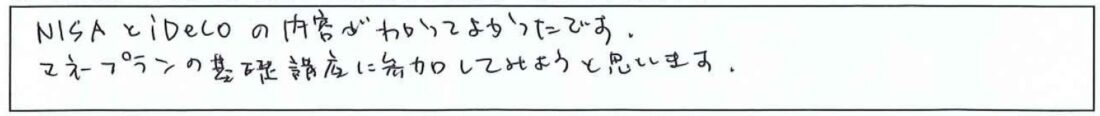 NISAとiDeCoの内容がわかってよかったです.
マネープランの基礎講座に参加してみようと思います.